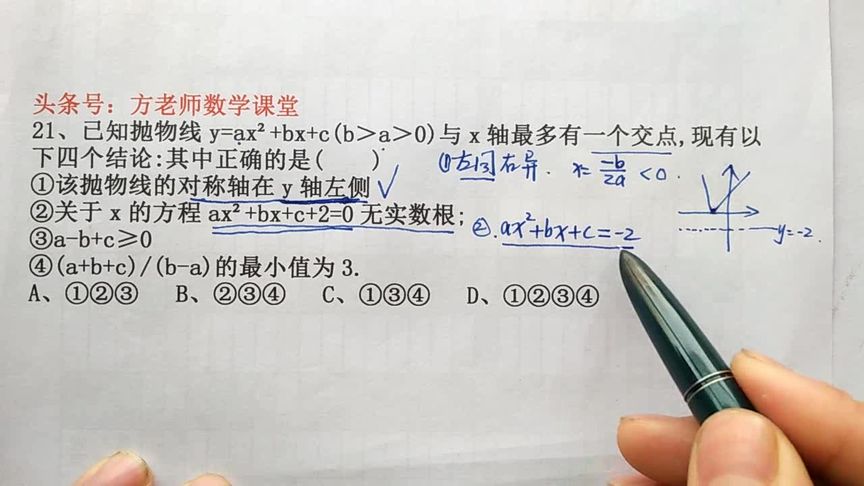 头条号：方老师数学课堂
21、已知抛物线 y=ax²+bx+c(b＞a＞0)与 x 轴最多有一个交点,现有以
下四个结论:其中正确的是(　　)
①左同右异. x=-b/2a<0.
①该抛物线的对称轴在 y 轴左侧 √
②关于 x 的方程 ax²+bx+c+2=0 无实数根;
②.ax²+bx+c=-2
y=-2.
③a-b+c≥0
④(a+b+c)/(b-a)的最小值为 3.
A、①②③　B、②③④　C、①③④　D、①②③④